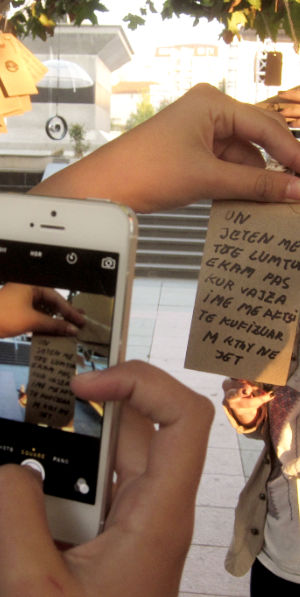 UN
JETEN ME
LUMTU
EKAM PAS
KUR VAJZA
IME ME AFTSI
TE KUFIZUAR
M KTHY NE
JET
SQUARE PANO